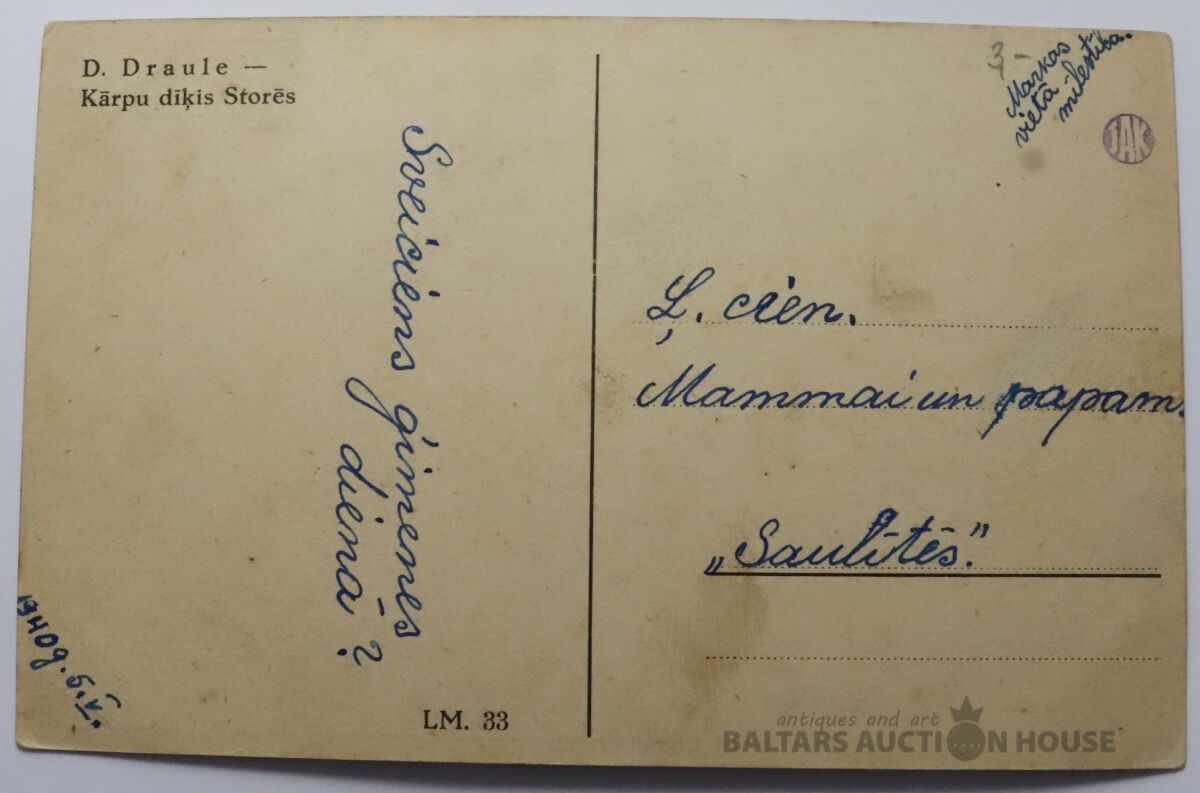 D. Draule —
Kārpu dīķis Storēs
Sveiciens ģimenes
dienā?
1940g. 5. V.
LM. 33
3-
Markas
vietā -
mīlestība.
JAK
Ļ. cien.
Mammai un papam.
„Saulītēs."
antiques and art
BALTARS AUCTION HOUSE